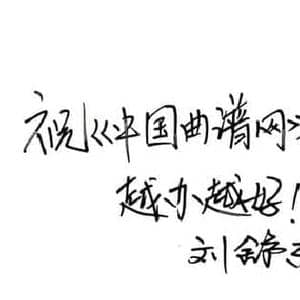 祝《中国曲谱网》
越办越好！
刘